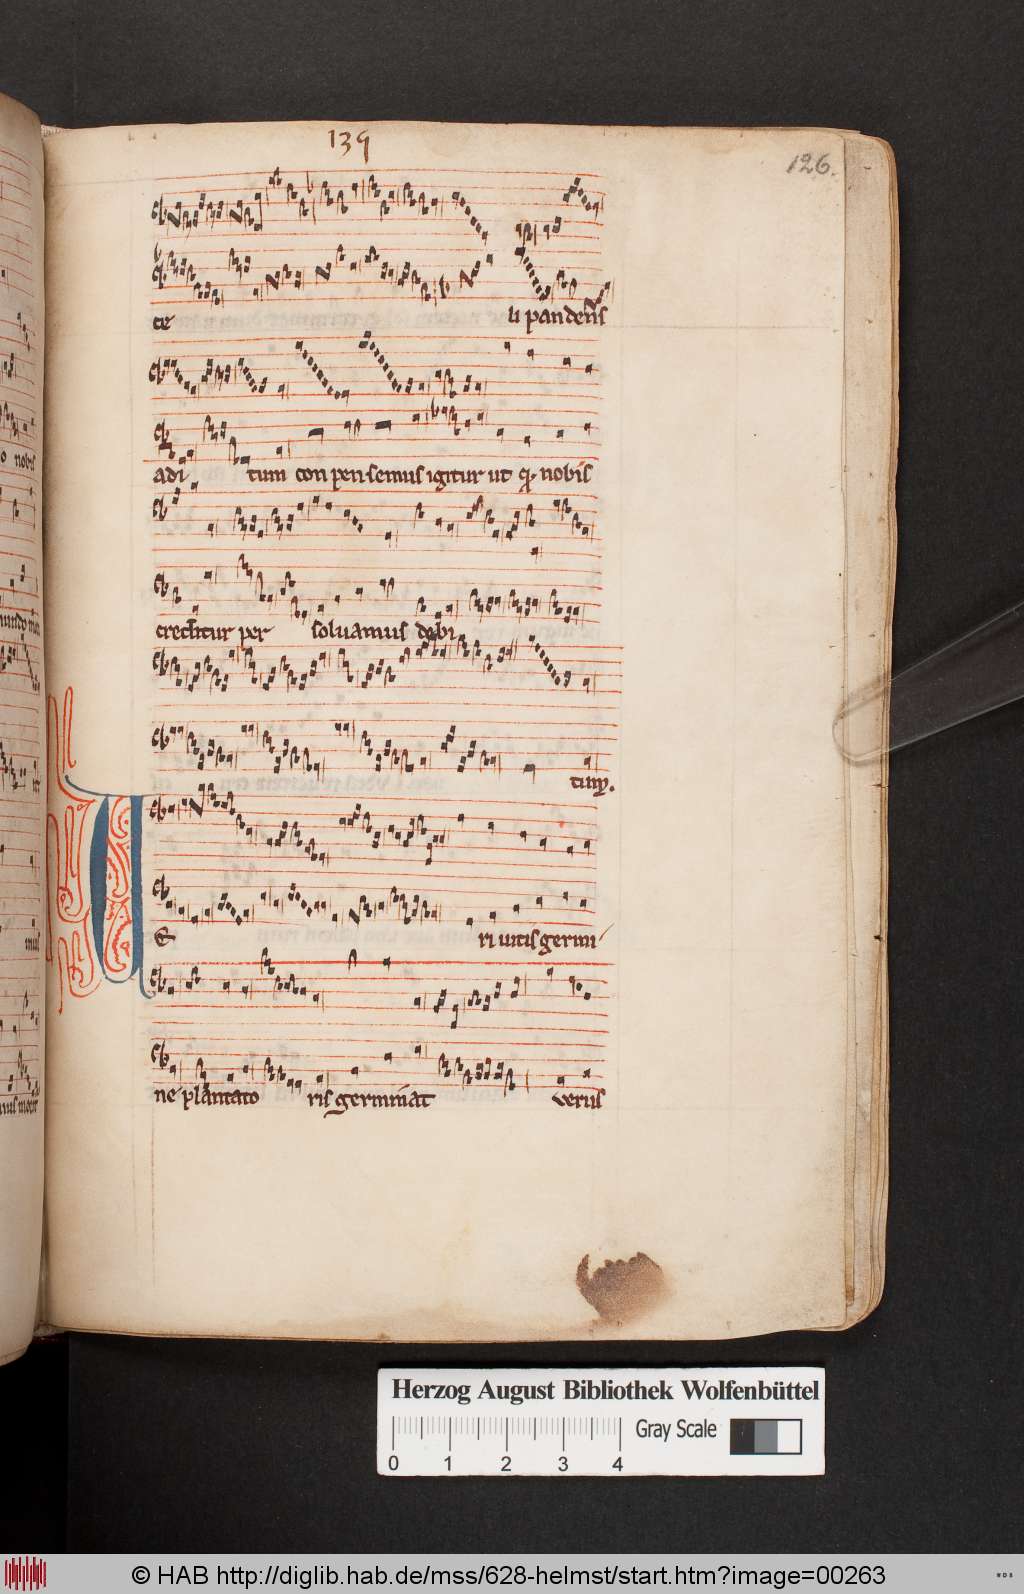 139
126.
te li pandens
adi tum con pen semus igitur ut q nobis
creditur per soluamus debi
tum.
VE ri uitis germi
ne plantato ris germinat verus
o nobis
mus
Herzog August Bibliothek Wolfenbüttel
Gray Scale
0 1 2 3 4
© HAB http://diglib.hab.de/mss/628-helmst/start.htm?image=00263